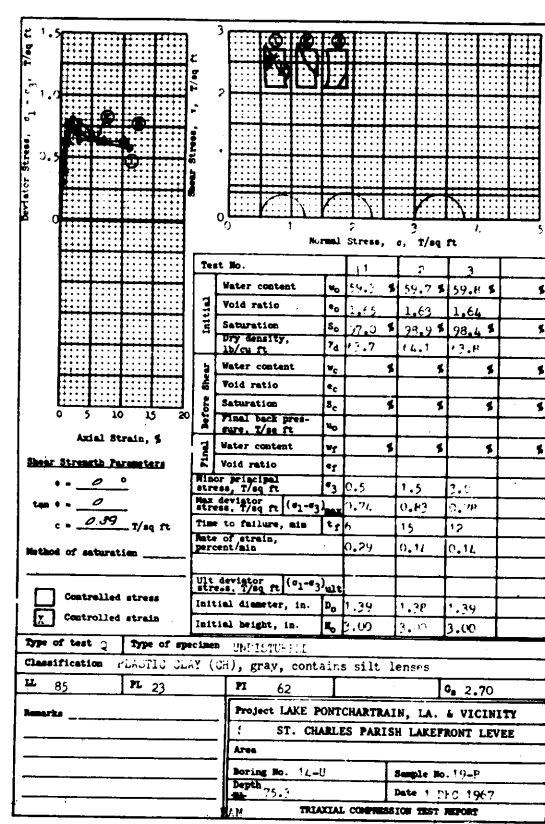 Deviator Stress, σ1 - σ3, T/sq ft
1.5
1.0
0.5
0
0 5 10 15 20
Axial Strain, %
Shear Stress, τ, T/sq ft
3
2
1
0
1 2 3
Normal Stress, σ, T/sq ft
Shear Strength Parameters
ϕ = 0 °
tan ϕ = 0
c = 0.39 T/sq ft
Method of saturation
Controlled stress
X Controlled strain
Test No. 1 2 3
Initial
Water content w₀ % 59.7 % 59.8 %
Void ratio e₀ 1.65 1.63 1.64
Saturation S₀ % 98.9 % 98.4 %
Dry density, lb/cu ft γd
Before Shear
Water content wc % % % %
Void ratio ec
Saturation Sc % % % %
Final back pressure, T/sq ft u₀
Final
Water content wf % % % %
Void ratio ef
Minor principal stress, T/sq ft σ3 0.5 1.5
Max deviator stress, T/sq ft (σ1-σ3)max 0.74 0.83 0.78
Time to failure, min tf 6 15 12
Rate of strain, percent/min 0.29 0.14 0.14
Ult deviator stress, T/sq ft (σ1-σ3)ult
Initial diameter, in. D₀ 1.39 1.38 1.39
Initial height, in. H₀ 3.00 3.00 3.00
Type of test Q Type of specimen UNDISTURBED
Classification PLASTIC CLAY (CH), gray, contains silt lenses
LL 85 PL 23 PI 62 Gs 2.70
Remarks
Project LAKE PONTCHARTRAIN, LA. & VICINITY
ST. CHARLES PARISH LAKEFRONT LEVEE
Area
Boring No. 14-U Sample No. 19-P
Depth 75.3 Date 1 DEC 1967
TRIAXIAL COMPRESSION TEST REPORT